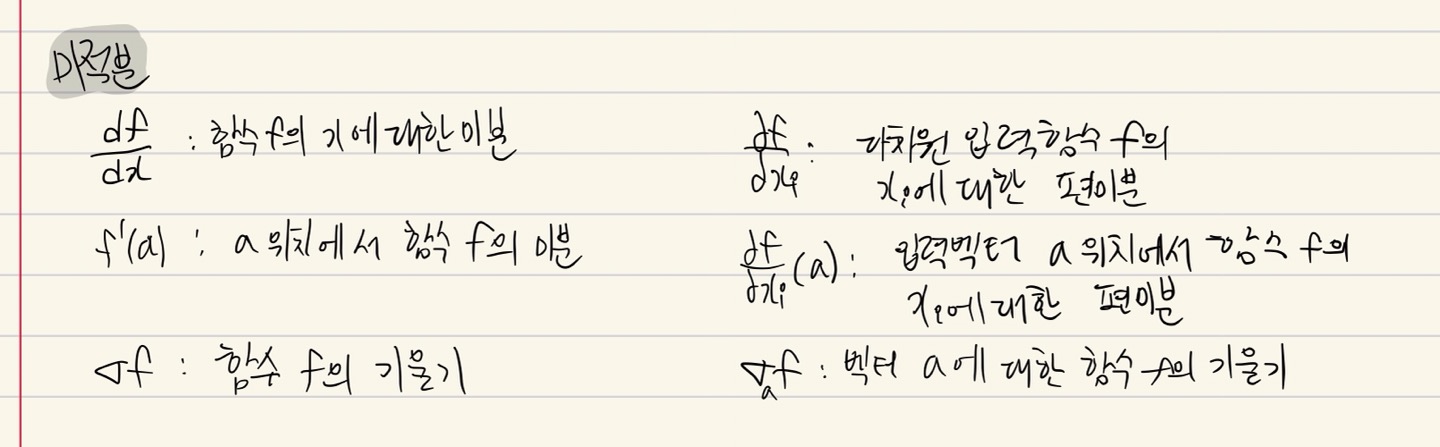 미적분
df/dx : 함수 f의 x에 대한 미분
∂f/∂xᵢ : 다차원 입력 함수 f의
xᵢ에 대한 편미분
f'(a) : a 위치에서 함수 f의 미분
∂f/∂xᵢ(a) : 입력벡터 a 위치에서 함수 f의
xᵢ에 대한 편미분
▽f : 함수 f의 기울기
▽ₐf : 벡터 a에 대한 함수 f의 기울기